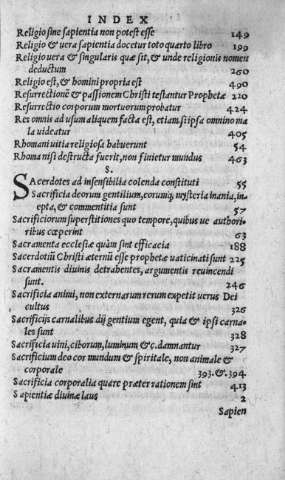 INDEX
Religio sine sapientia non potest esse 149
Religio & uera sapientia docetur toto quarto libro 199
Religio uera & singularis quæ sit, & unde religionis nomen
deductum 260
Religio est, & homini propria est 490
Resurrectionē & passionem Christi testantur Prophetæ 220
Resurrectio corporum mortuorum probatur 424
Res omnis ad usum aliquem facta est, etiamsi ipsa omnino ma
la uideatur 405
Rhomani uitia religiosa habuerunt 54
Rhoma nisi destructa fuerit, non finietur mundus 463
S.
SAcerdotes ad insensibilia colenda constituti 55
Sacrificia deorum gentilium, eorumq; mysteria inania, in=
epta, & commentitia sunt 57
Sacrificiorum superstitiones quo tempore, quibus ue authori
ribus cœperint 63
Sacramenta ecclesiæ quàm sint efficacia 188
Sacerdotiū Christi æternū esse prophetæ uaticinati sunt 225
Sacramentis diuinis detrahentes, argumentis reuincendi
sunt. 246
Sacrificia animi, non externarum rerum expetit uerus Dei
cultus 326
Sacrificijs carnalibus dij gentium egent, quia & ipsi carna=
les sunt 328
Sacrificia uini, ciborum, luminum &c. damnantur 327
Sacrificium deo cor mundum & spiritale, non animale &
corporale 393. & 394.
Sacrificia corporalia quare præter rationem sint 413
Sapientiæ diuinæ laus 2
Sapien